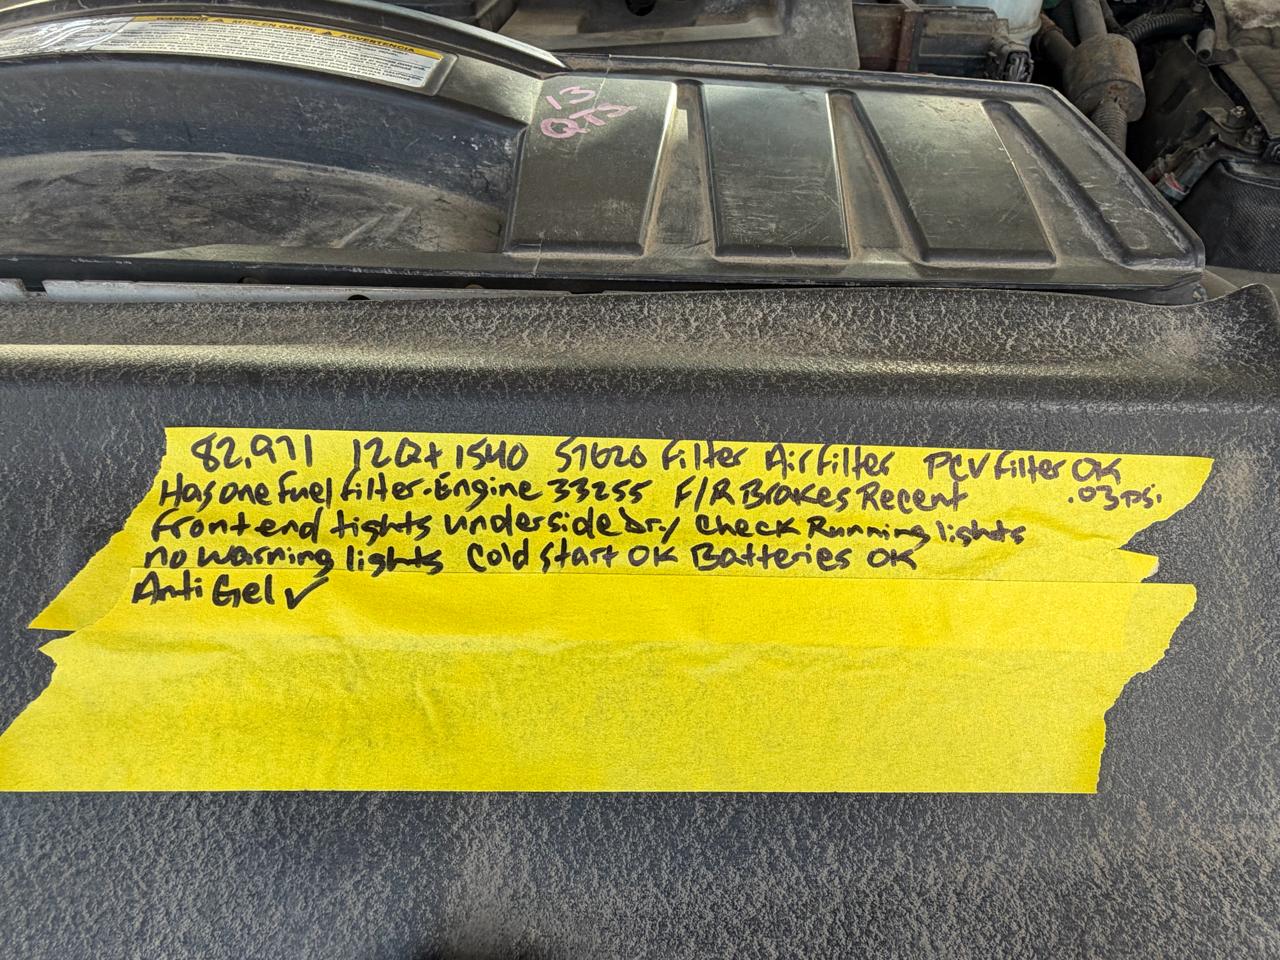 WARNING MISE EN GARDE ADVERTENCIA
13
QTS
82,971 12Qt 1540 57620 Filter Air filter PCV filter OK
Has one fuel filter-Engine 33255 F/R Brakes Recent .03 psi.
Front end tights underside Dry Check Running lights
no warning lights Cold start OK Batteries OK
Anti Gel ✓